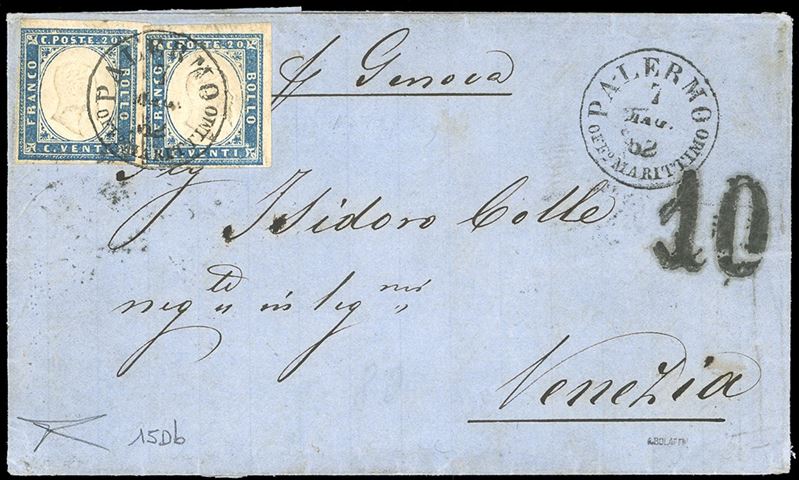 C. POSTE. 20
FRANCO
BOLLO
C. VENTI
C. POSTE. 20
FRANCO
BOLLO
C. VENTI
PALERMO
62
OFF.º MARITTIMO
p Genova
PALERMO
7
MAG.
62
OFF.º MARITTIMO
10
Sig
Isidoro Colle
neg.te in legnmi
Venezia
15Db
A.BOLAFFI